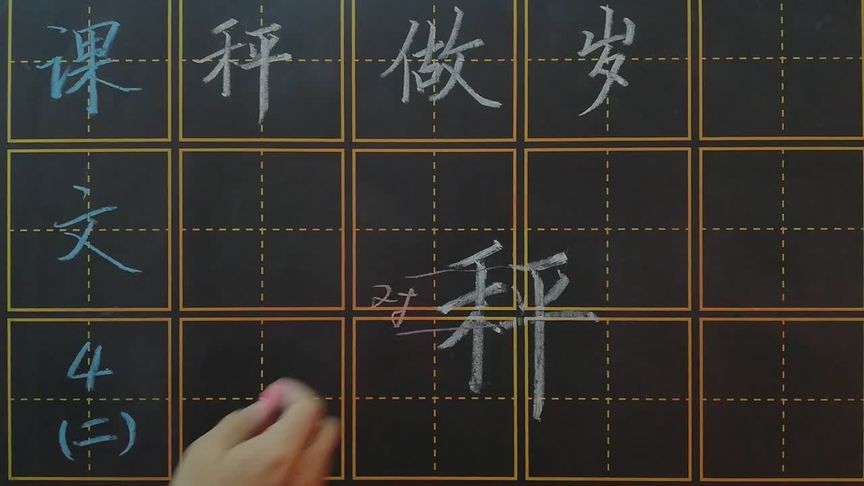 课 秤 做 岁
文
对 秤
4
(二)